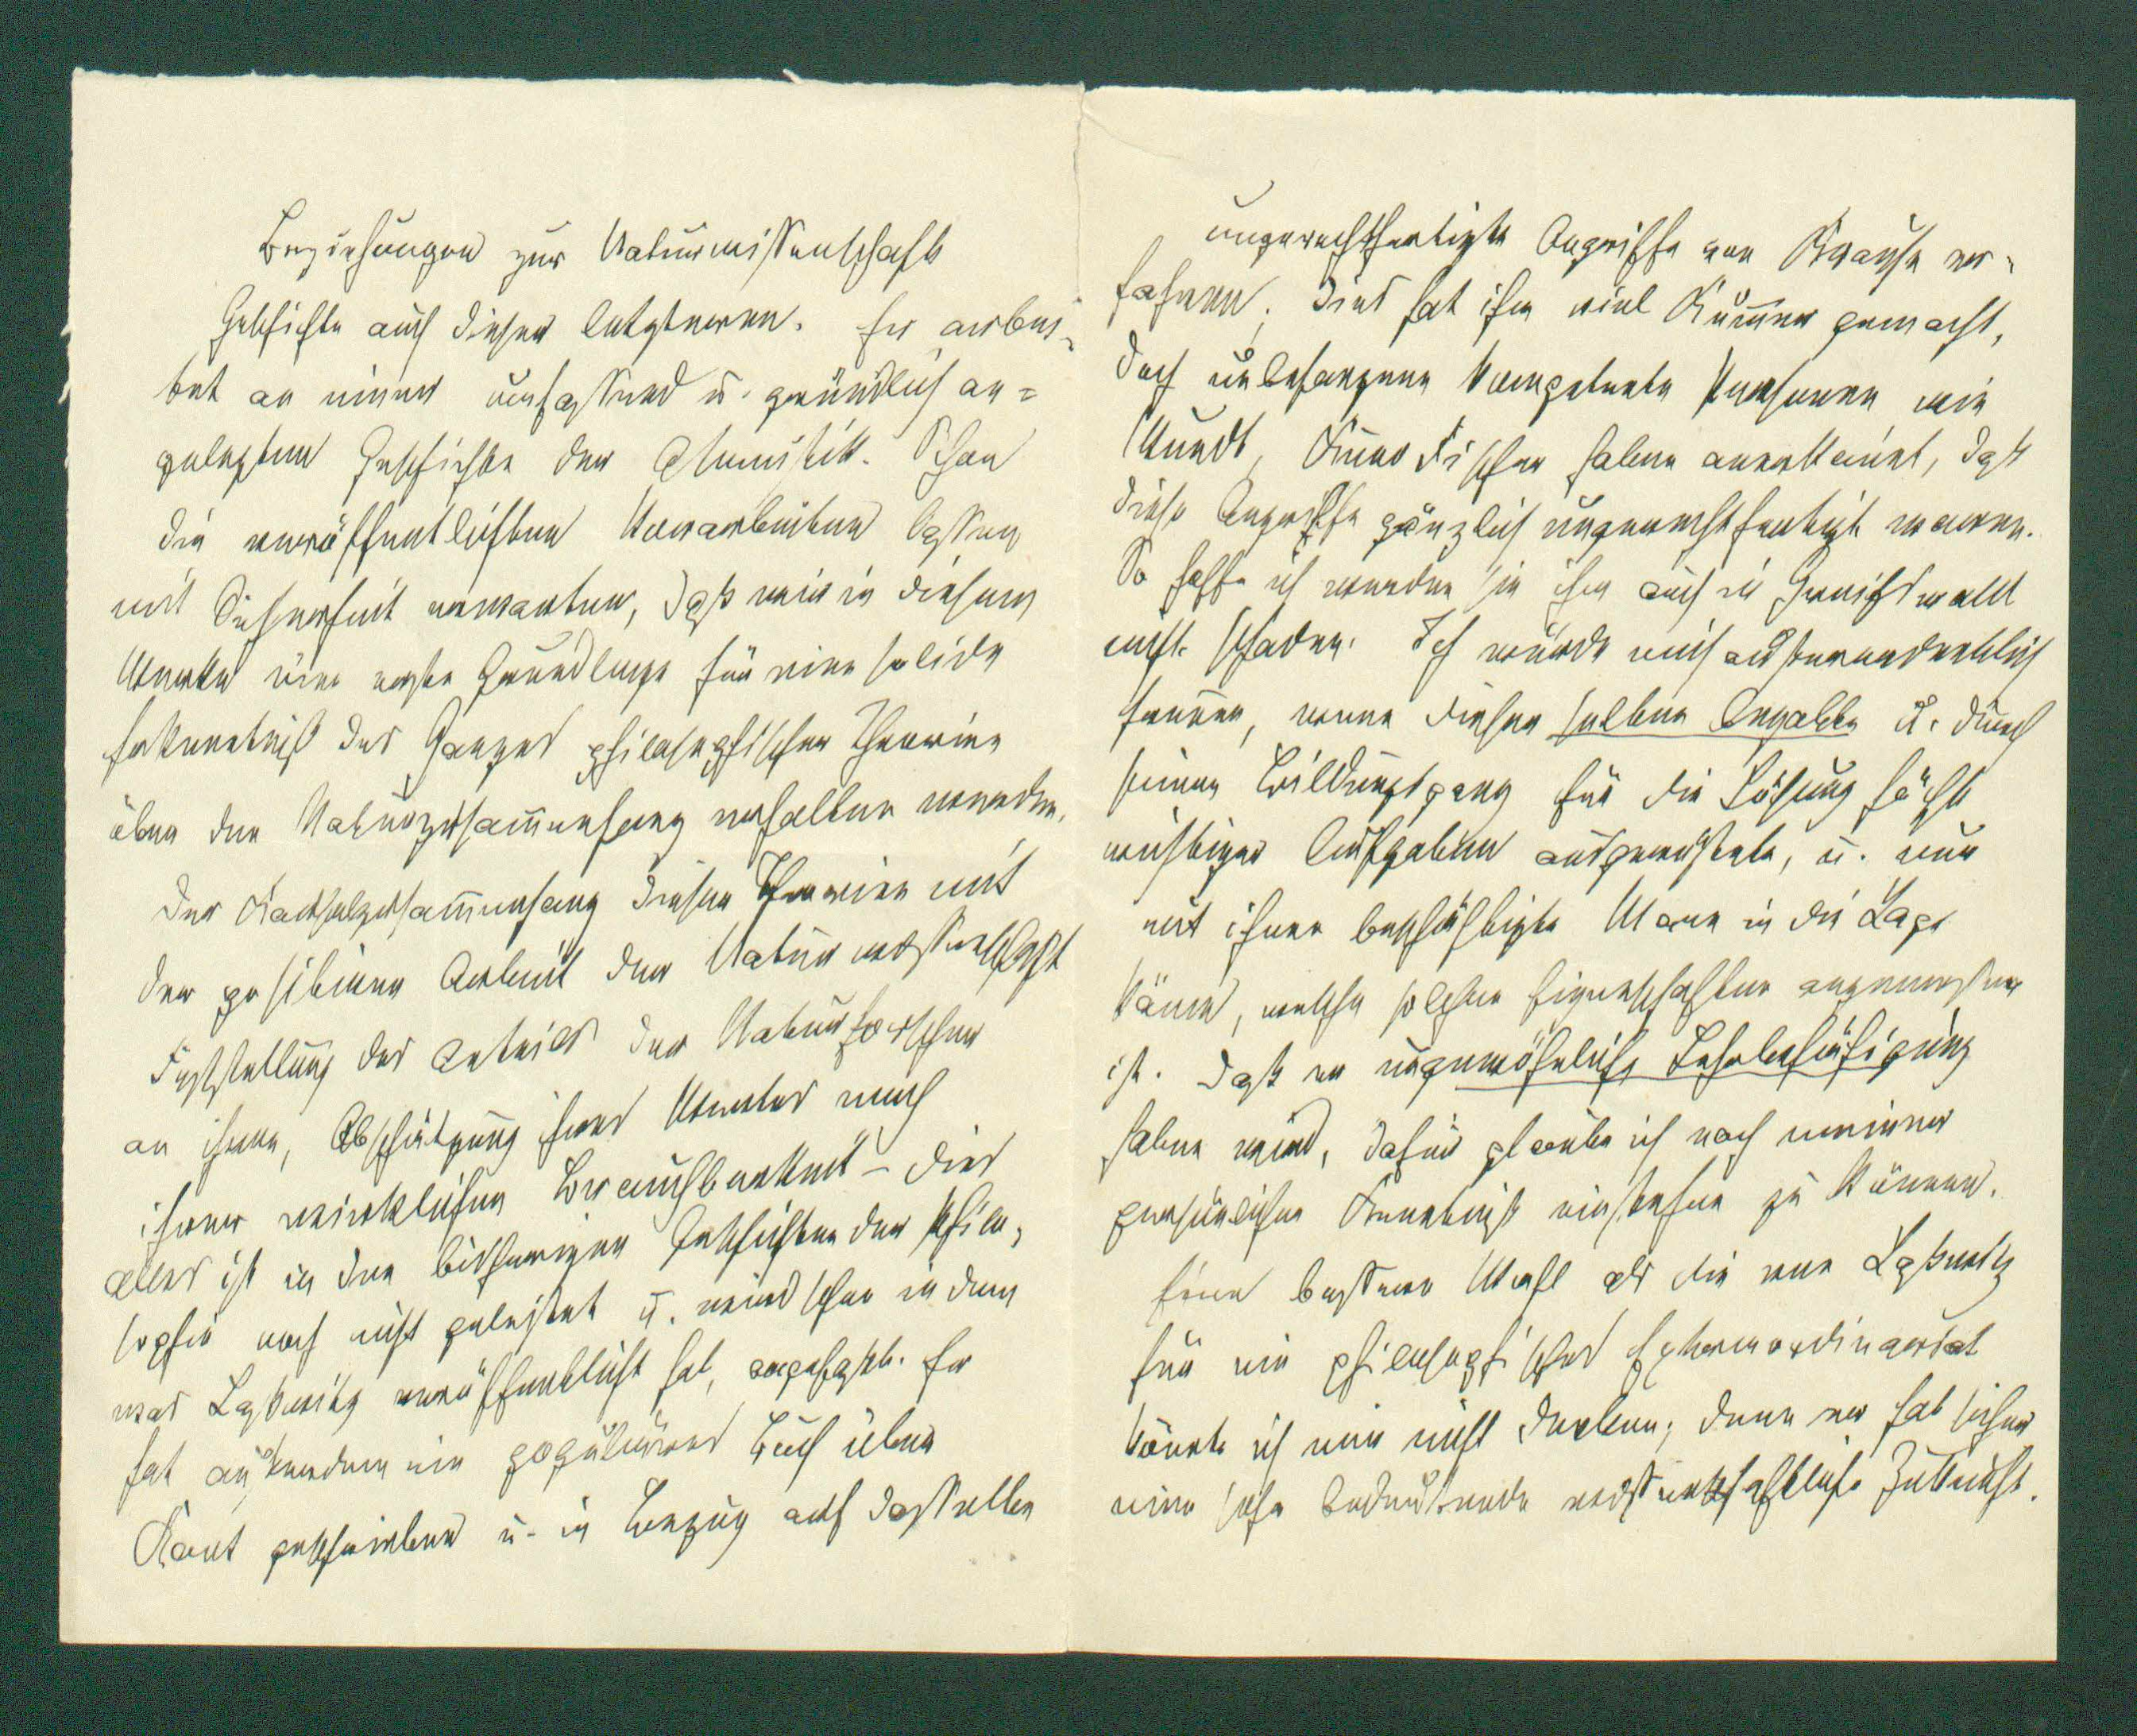 Beziehungen zur Naturwissenschaft
Geschichte auch dieser letzteren. Er arbei-
tet an einer umfassend u. gründlich an=
gelegten Geschichte der Atomistik. Schon
die veröffentlichten Vorarbeiten lassen
mit Sicherheit erwarten, daß wir in diesem
Werke eine erste Grundlage für eine solide
Erkenntniß des Ganges philosophischer Theorien
über den Naturzusam̅enhang erhalten werden.
Der Kausalzusam̅enhang dieser Theorien mit
der positiven Arbeit der Naturwissenschaft
Feststellung des Anteils der Naturforscher
an ihnen, Abschätzung ihres Wertes nach
ihrer wirklichen Brauchbarkeit – dies
alles ist in den bisherigen Geschichten der Philo-
sophie noch nicht geleistet u. wird schon in dem
was Laßwitz veröffentlicht hat, angefaßt. Er
hat außerdem ein populäres Buch über
Kant geschrieben u. in Bezug auf dasselbe
ungerechtfertigte Angriffe von Krause er-
fahren; dies hat ihm viel Kum̅er gemacht,
doch unbefangene kompetente Personen wie
Wundt, Kuno Fischer haben anerkan̅t, daß
diese Angriffe gänzlich ungerechtfertigt waren.
So hoffe ich werden sie ihm auch in Greifswald
nicht schaden. Ich würde mich außerordentlich
freuen, wenn dieser selten begabte u. durch
seinen Bildungsgang für die Lösung höchst
wichtiger Aufgaben ausgerüstete, u. nun
mit ihnen beschäftigte Mann in die Lage
käme, welche solchen Eigenschaften angemessen
ist. Daß er ungewöhnliche Lehrbefähigung
haben wird, dafür glaube ich nach meiner
persönlichen Kenntniß einstehen zu können.
Eine bessere Wahl als die von Laßwitz
für ein philosophisches Extraordinariat
könnte ich mir nicht denken; denn er hat sicher
eine sehr bedeutende wissenschaftliche Zukunft.